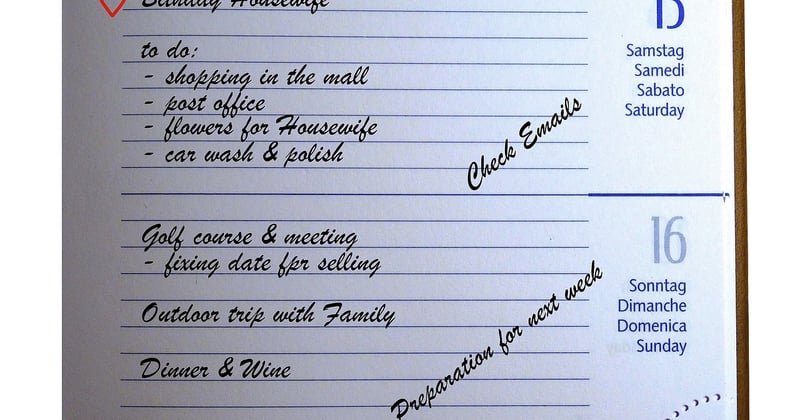 Birthday Housewife
to do:
- shopping in the mall
- post office
- flowers for Housewife
- car wash & polish
Check Emails
15
Samstag
Samedi
Sabato
Saturday
Golf course & meeting
- fixing date fpr selling
Outdoor trip with Family
Dinner & Wine
Preparation for next week
16
Sonntag
Dimanche
Domenica
Sunday